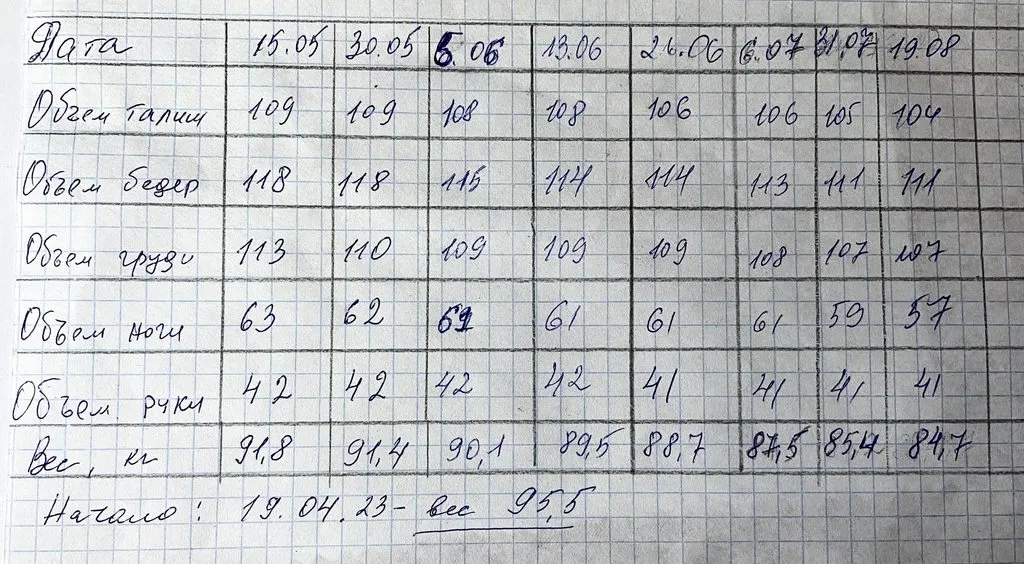 Дата 15.05 30.05 5.06 13.06 26.06 6.07 31.07 19.08
Объем талии 109 109 108 108 106 106 105 104
Объем бедер 118 118 115 114 114 113 111 111
Объем груди 113 110 109 109 109 108 107 107
Объем ноги 63 62 61 61 61 59 57
Объем руки 42 42 42 42 41 41 41 41
Вес, кг 91,8 91,4 90,1 89,5 88,7 87,5 85,4 84,7
Начало: 19.04.23 - вес 95,5